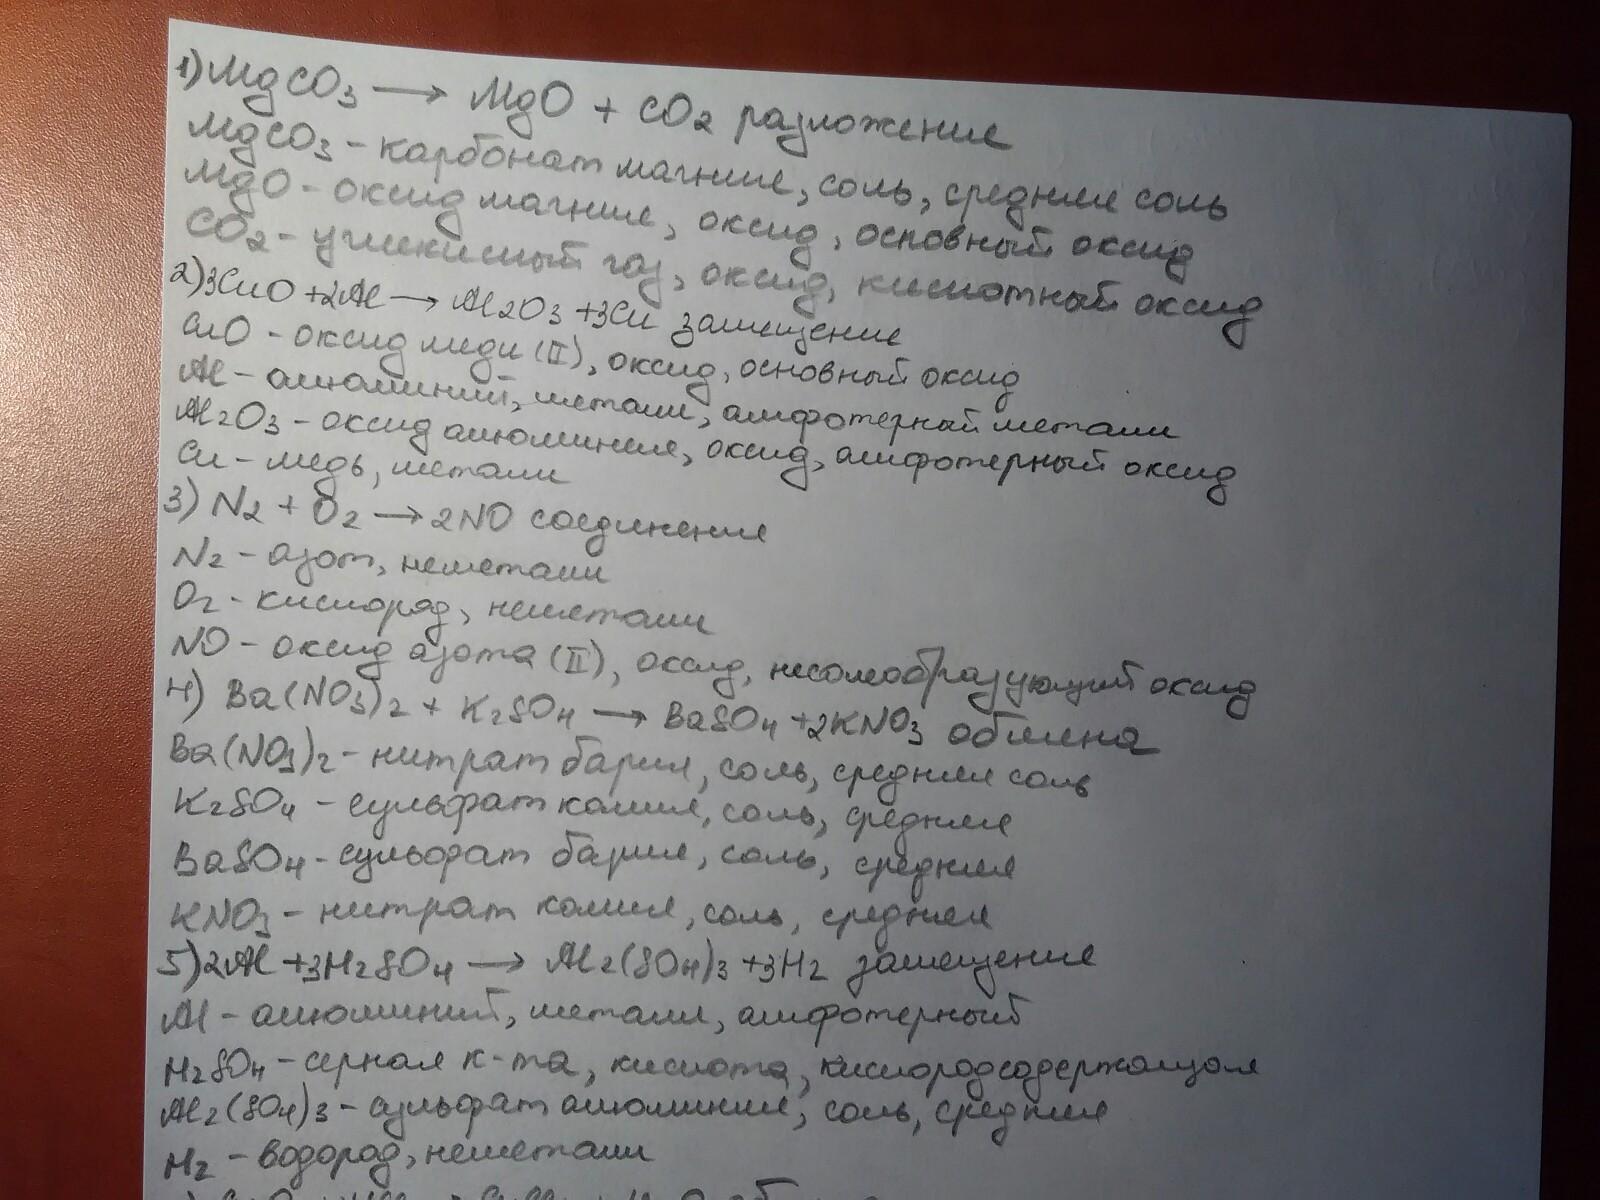 1) MgCO3 → MgO + CO2 разложение
MgCO3 - карбонат магния, соль, средняя соль
MgO - оксид магния, оксид, основный оксид
CO2 - углекислый газ, оксид, кислотный оксид
2) 3CuO + 2Al → Al2O3 + 3Cu замещение
CuO - оксид меди (II), оксид, основный оксид
Al - алюминий, металл, амфотерный металл
Al2O3 - оксид алюминия, оксид, амфотерный оксид
Cu - медь, металл
3) N2 + O2 → 2NO соединение
N2 - азот, неметалл
O2 - кислород, неметалл
NO - оксид азота (II), оксид, несолеобразующий оксид
4) Ba(NO3)2 + K2SO4 → BaSO4 + 2KNO3 обмена
Ba(NO3)2 - нитрат бария, соль, средняя соль
K2SO4 - сульфат калия, соль, средняя
BaSO4 - сульфат бария, соль, средняя
KNO3 - нитрат калия, соль, средняя
5) 2Al + 3H2SO4 → Al2(SO4)3 + 3H2 замещение
Al - алюминий, металл, амфотерный
H2SO4 - серная к-та, кислота, кислородсодержащая
Al2(SO4)3 - сульфат алюминия, соль, средняя
H2 - водород, неметалл